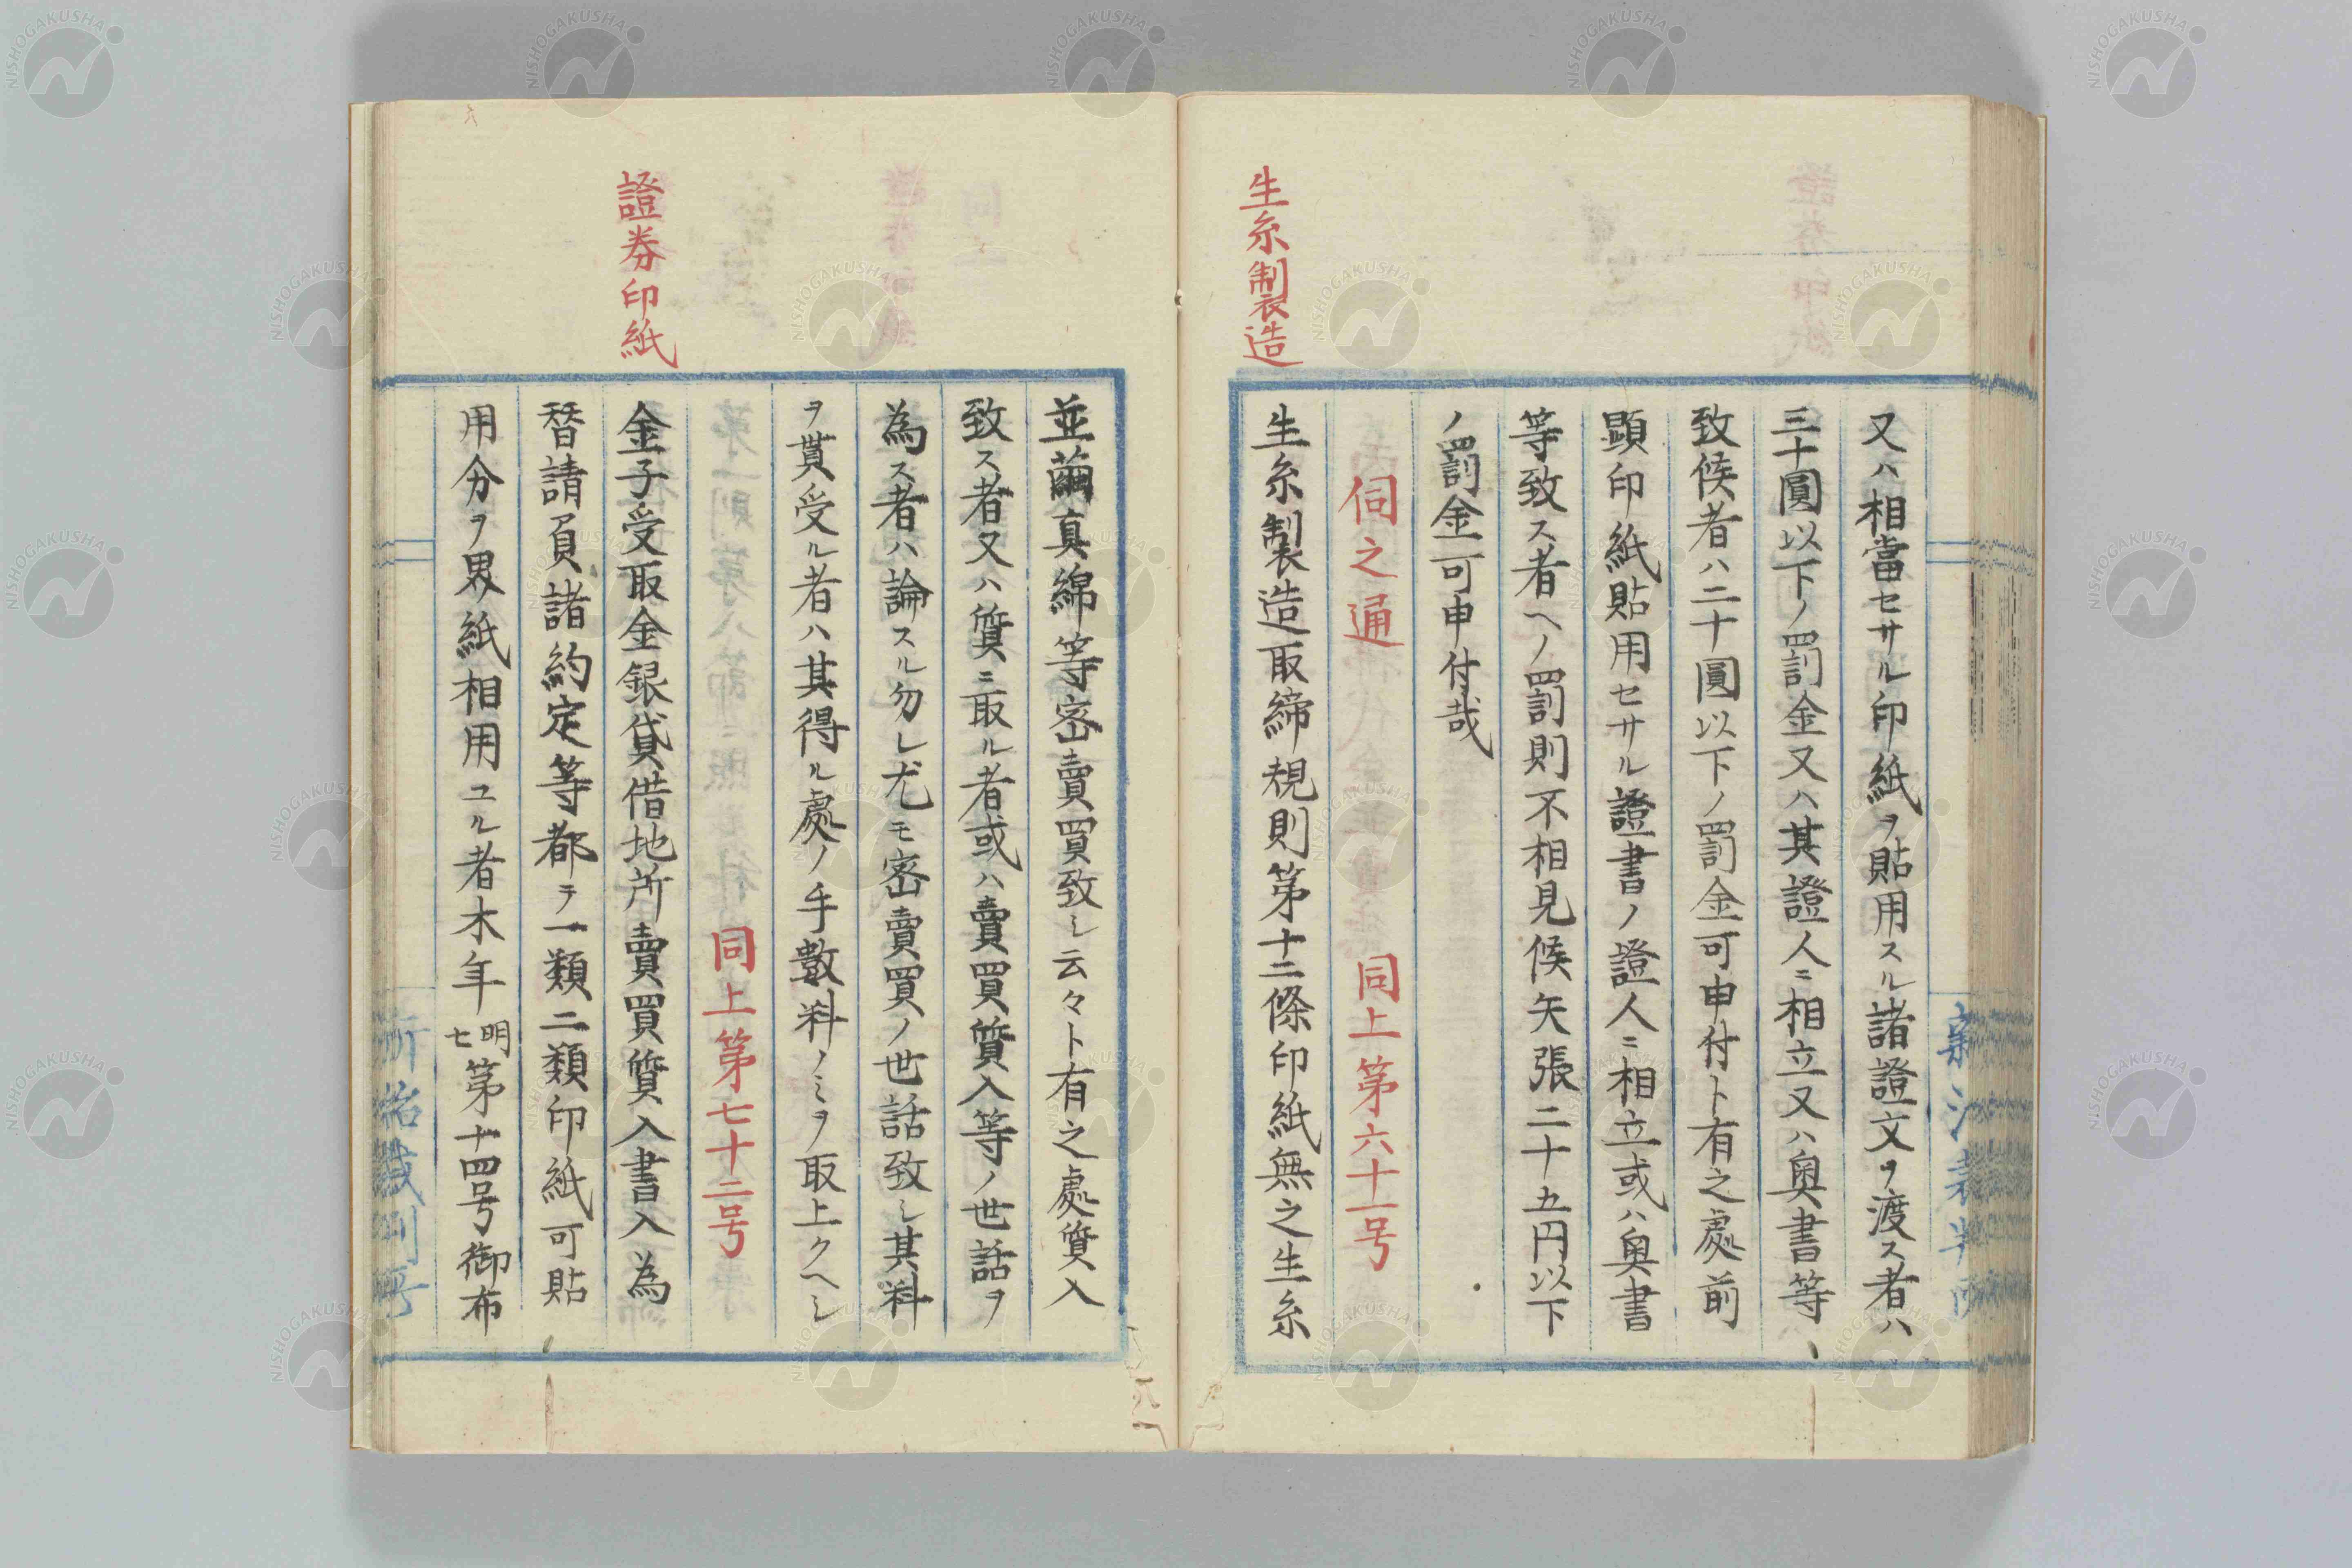 又ハ相當セサル印紙ヲ貼用スル諸證文ヲ渡ス者ハ
三十圓以下ノ罰金又ハ其證人ニ相立又ハ奥書等
致候者ハ二十圓以下ノ罰金可申付ト有之處前
顕印紙貼用セサル證書ノ證人ニ相立或ハ奥書
等致ス者ヘノ罰則不相見候矢張二十五円以下
ノ罰金可申付哉
伺之通 同上第六十一号
生糸製造
生糸製造取締規則第十二條印紙無之生糸
並繭真綿等密賣買致シ云々ト有之處質入
致ス者又ハ質ニ取ル者或ハ賣買質入等ノ世話ヲ
為ス者ハ論スル勿レ尤モ密賣買ノ世話致シ其料
ヲ貰受ル者ハ其得ル處ノ手數料ノミヲ取上クヘシ
同上第七十二号
證券印紙
金子受取金銀貸借地所賣買質入書入為
替請負諸約定等都テ一類二類印紙可貼
用分ヲ界紙相用ユル者本年明七第十四号御布
NISHOGAKUSHA